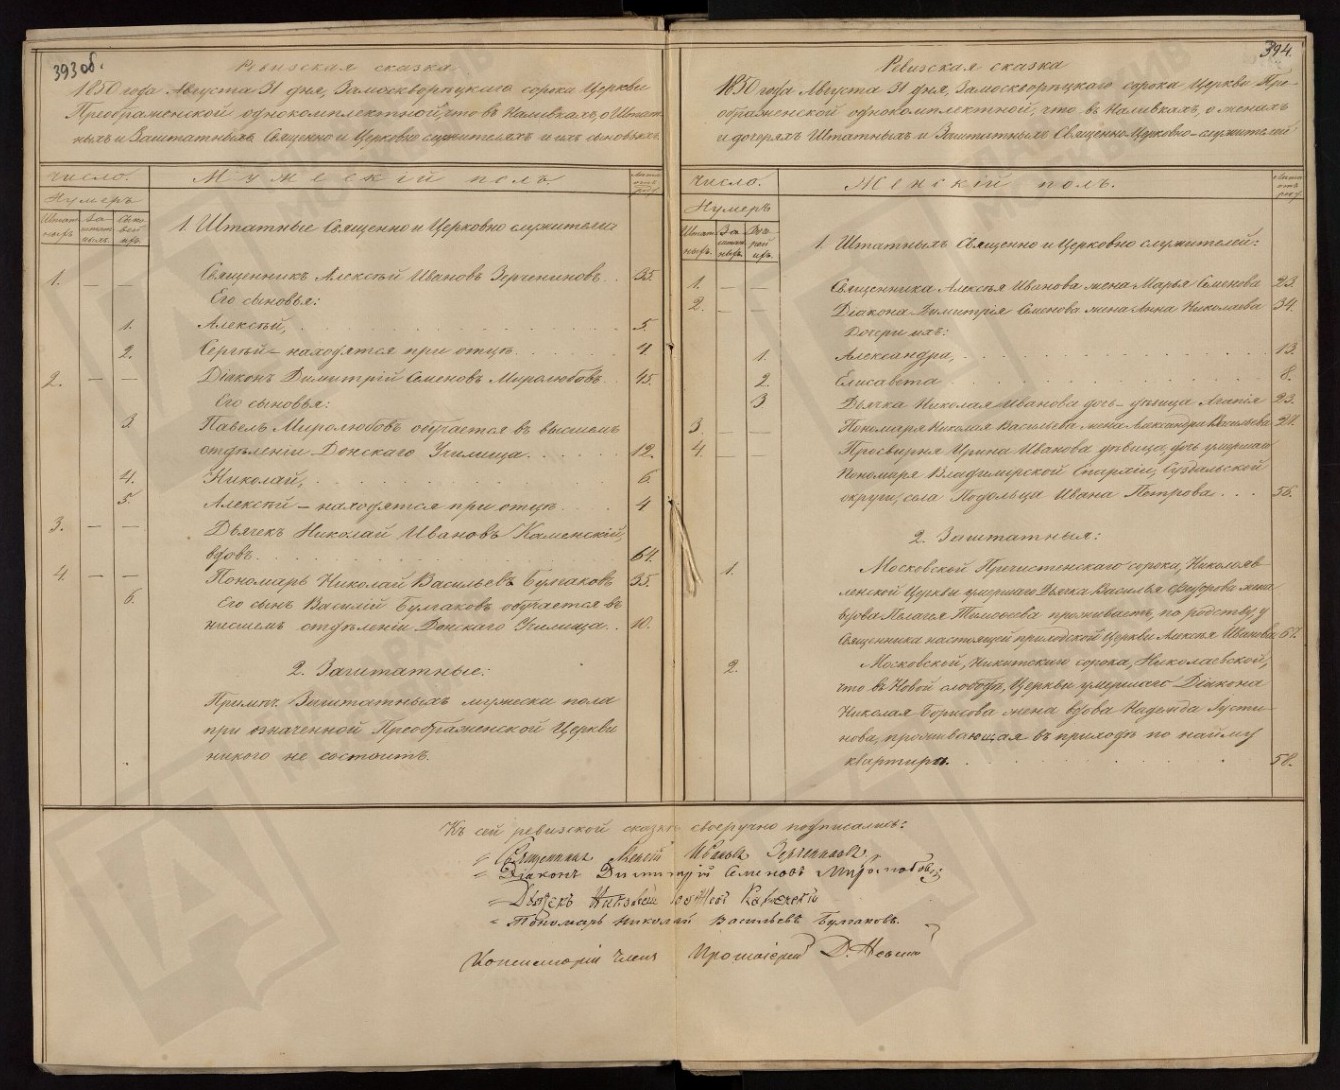 393 об.
Ревизская сказка
1850 года Августа 31 дня, Замоскворецкаго сорока Церкви
Преображенской однокомплектной, что въ Наливкахъ, о Штат-
ныхъ и Заштатныхъ Священно и Церковно служителяхъ и ихъ сыновьяхъ.
Число. Мужескій полъ. Лѣта отъ род.
Нумеръ
Штат-ныхъ. За-штат-ныхъ. Сыно-вей ихъ.
1. Штатные Священно и Церковно служители:
1. — — Священникъ Алексѣй Ивановъ Зерчениновъ. 35
Его сыновья:
1. Алексѣй, 5.
2. Сергѣй – находятся при отцѣ. 4.
2. — — Діаконъ Димитрій Семеновъ Миролюбовъ. 45.
Его сыновья:
3. Павелъ Миролюбовъ обучается въ высшемъ
отдѣленіи Донскаго Училища. 12.
4. Николай, 6.
5. Алексѣй – находятся при отцѣ 4
3. — — Дьячекъ Николай Ивановъ Каменскій,
вдовъ. 64.
4. — — Пономарь Николай Васильевъ Булгаковъ 35.
6. Его сынъ Василій Булгаковъ обучается въ
низшемъ отдѣленіи Донскаго Училища. 10.
2. Заштатные:
Примѣч. Заштатныхъ мужеска пола
при означенной Преображенской Церкви
никого не состоитъ.
394.
Ревизская сказка
1850 года Августа 31 дня, Замоскворецкаго сорока Церкви Пре-
ображенской однокомплектной, что въ Наливкахъ, о женахъ
и дочеряхъ Штатныхъ и Заштатныхъ Священно Церковно-служителей
Число. Женскій полъ. Лѣта отъ род.
Нумеръ
Штат-ныхъ. За-штат-ныхъ. Доч-рей ихъ.
1. Штатныхъ Священно и Церковно служителей:
1. — — Священника Алексѣя Иванова жена Марья Семенова 23.
2. — — Діакона Димитрія Семенова жена Анна Николаева 34.
Дочери ихъ:
1. Александра, 13.
2. Елисавета 8.
3. Дьячка Николая Иванова дочь – дѣвица Агапія 23.
3. — — Пономаря Николая Васильева жена Александра Васильева 27.
4. — — Просвирня Ирина Иванова дѣвица, дочь умершаго
Пономаря Владимирской Епархіи, Суздальской
округи, села Подольца Ивана Петрова. 56.
2. Заштатныя:
1. Московской Пречистенскаго сорока, Николояв-
ленской Церкви умершаго Дьячка Василья Федорова жена
вдова Пелагея Тимофеева проживаетъ, по родству, у
Священника настоящей приходской Церкви Алексѣя Иванова 67.
2. Московской, Никитскаго сорока, Николаевской,
что въ Новой слободѣ, Церкви умершаго Діакона
Николая Борисова жена вдова Надежда Густи-
нова, проживающая въ приходѣ по найму
квартиры. 58.
Къ сей ревизской сказкѣ своеручно подписались:
Священникъ Алексѣй Ивановъ Зерчениновъ
Діаконъ Димитрій Семеновъ Миролюбовъ
Дьячекъ Николай Каменскій
Пономарь Николай Васильевъ Булгаковъ.
Консисторіи Членъ Протоіерей Д.